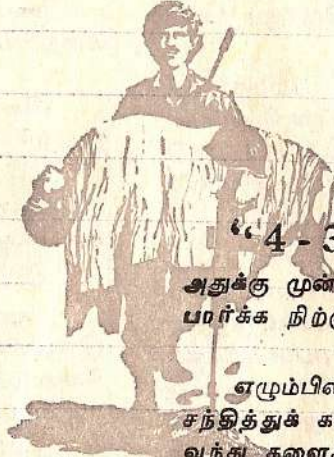 “4 - 3
அதுக்கு முன்
பார்க்க நிற்கு
எழும்பி
சந்தித்துக் க
வந்து களை